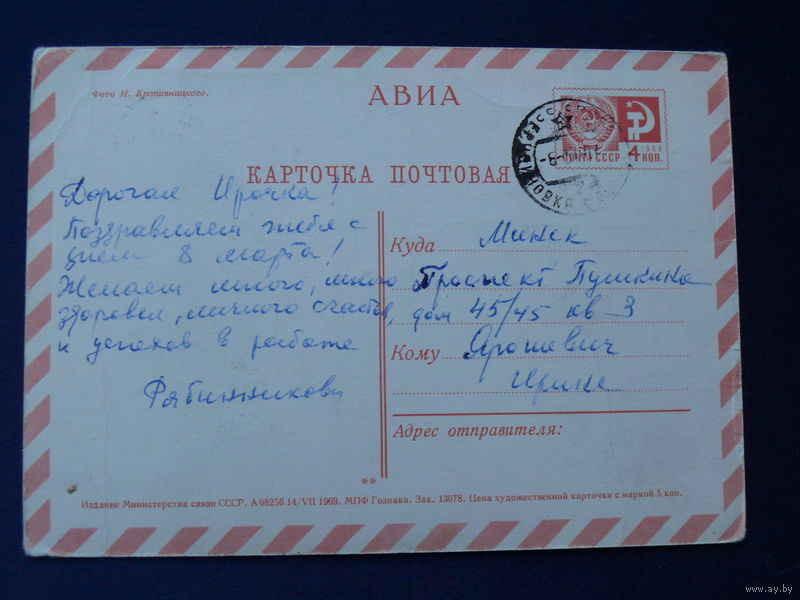 Фото И. Кропивницкого.
АВИА
1966
ПОЧТА СССР
4 КОП.
КАРТОЧКА ПОЧТОВАЯ
Дорогая Ирочка!
Поздравляем тебя с
днем 8 марта!
Желаем много, много
здоровья, личного счастья,
и успехов в работе
Рябинниковы
Куда Минск
Проспект Пушкина
дом 45/45 кв 3
Кому Ярошевич
Ирине
Адрес отправителя:
**
Издание Министерства связи СССР. А 08256 14/VII 1969. МПФ Гознака. Зак. 13078. Цена художественной карточки с маркой 5 коп.
www.ay.by